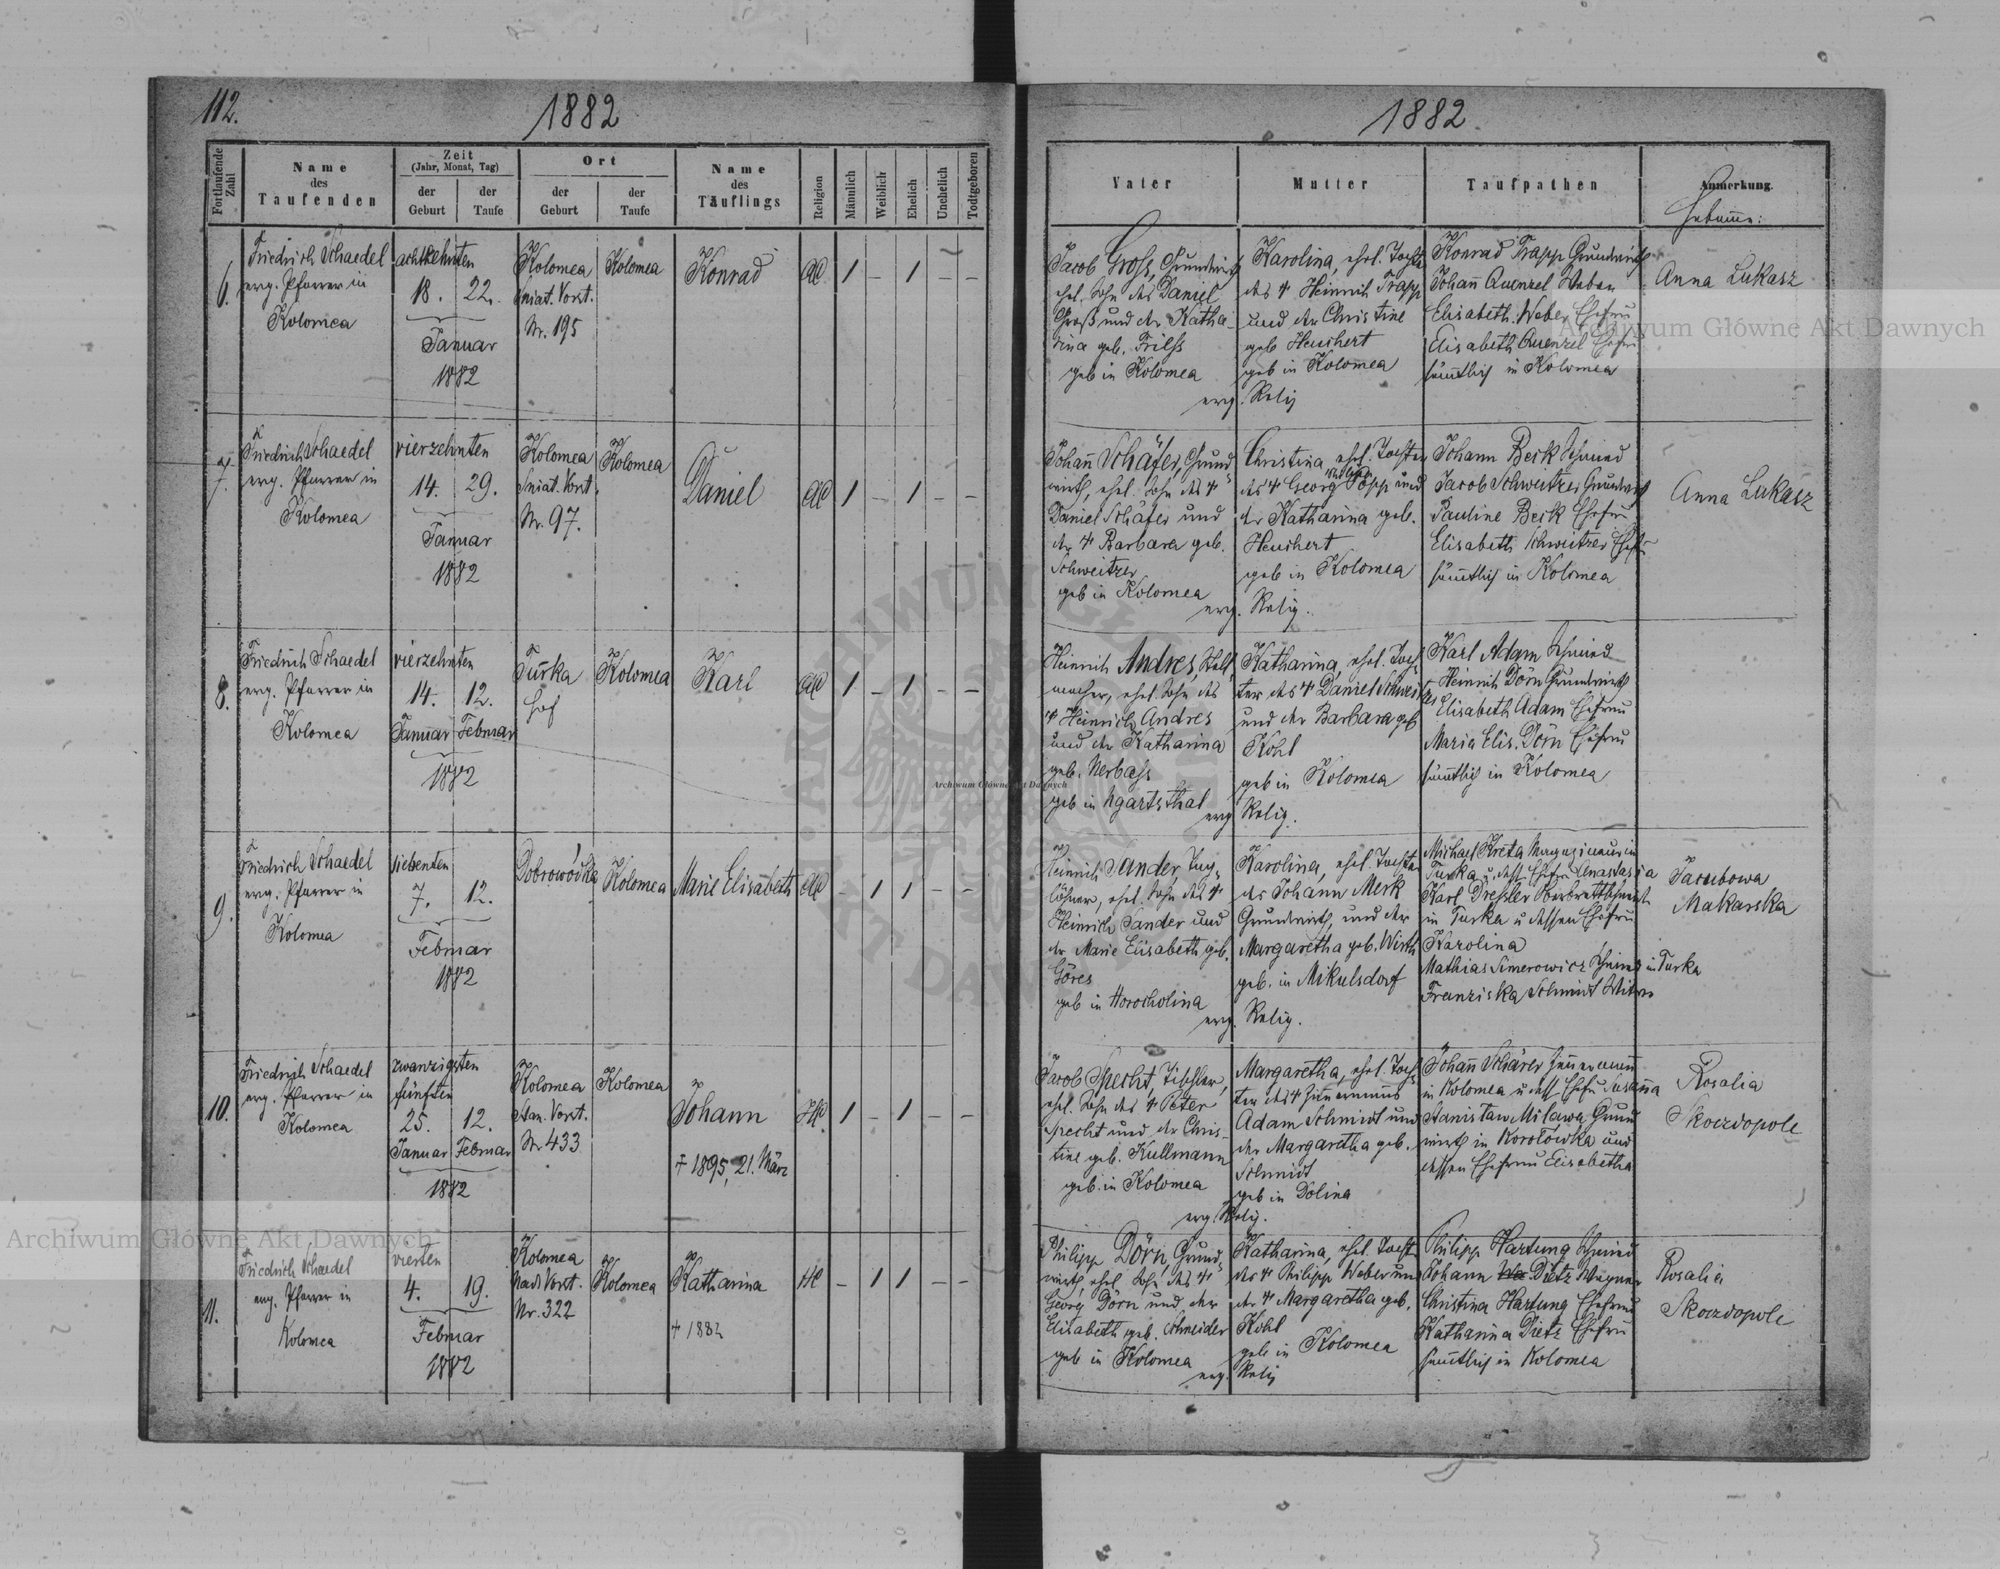 112.
1882
1882.
Fortlaufende Zahl
Name
des
Taufenden
Zeit
(Jahr, Monat, Tag)
der
Geburt
der
Taufe
Ort
der
Geburt
der
Taufe
Name
des
Täuflings
Religion
Männlich
Weiblich
Ehelich
Unehelich
Todtgeboren
Vater
Mutter
Taufpathen
Anmerkung.
6.
Friedrich Schaedel
evg. Pfarrer in
Kolomea
achtzehnten
18. 22.
Januar
1882
Kolomea
Sniat. Vorst.
Nr. 195
Kolomea
Konrad
1 – 1 – –
Jacob Gross, Grundwirth
ehel. Sohn des Daniel
Groß und der Katha-
rina geb.
geb in Kolomea
Karolina, ehel. Tochter
des + Heinrich Trapp
und der Christine
geb Heuchert
geb in Kolomea
evg. Relig
Konrad Trapp Grundwirth
Johann Quenzel Weber
Elisabeth Weber Ehefrau
Elisabeth Quenzel Ehefrau
sämtlich in Kolomea
Anna Lukasz
7.
Friedrich Schaedel
evg. Pfarrer in
Kolomea
vierzehnten
14. 29.
Januar
1882
Kolomea
Sniat. Vorst.
Nr. 97.
Kolomea
Daniel
1 – 1 – –
Johann Schäfer, Grund-
wirth, ehel. Sohn des +
Daniel Schäfer und
der + Barbara geb.
Schweitzer
geb in Kolomea
Christina, ehel. Tochter
des + Georg Popp und
der Katharina geb.
Heuchert
geb in Kolomea
evg. Relig.
Johann Beck Schmied
Jacob Schweitzer Grundwirth
Pauline Beck Ehefrau
Elisabeth Schweitzer Ehefr
sämtlich in Kolomea
Anna Lukasz
8.
Friedrich Schaedel
evg. Pfarrer in
Kolomea
vierzehnten
14. 12.
Januar Februar
1882
Turka
hof
Kolomea
Karl
1 – 1 – –
Heinrich Andres,
macher, ehel. Sohn des
+ Heinrich Andres
und der Katharina
geb. Nerbass
geb in Ugartsthal
Katharina, ehel. Toch-
ter des + Daniel Schweitzer
und der Barbara geb
Kohl
geb in Kolomea
evg Relig.
Karl Adam Schmied
Heinrich Dörn Grundwirth
Elisabeth Adam Ehefrau
Maria Elis. Dörn Ehefrau
sämtlich in Kolomea
9.
Friedrich Schaedel
evg. Pfarrer in
Kolomea
siebenten
7. 12.
Februar
1882
Dobrowódka
Kolomea
Marie Elisabeth
– 1 1 – –
Heinrich Sander Tag-
löhner, ehel. Sohn des +
Heinrich Sander und
der Marie Elisabeth geb.
Göres
geb in Horocholina
Karolina, ehel. Tochter
des Johann Merk
Grundwirth, und der
Margaretha geb. Wirth
geb. in Mikulsdorf
evg. Relig.
Michael Kreta Magazineur in
Turka u. dess Ehefr Anastasia
Karl Dressler
in Turka u dessen Ehefrau
Karolina
Mathias Simerowicz Schmied in Turka
Franziska Schmidt Witwe
Jacubowa
Makarska
10.
Friedrich Schaedel
evg. Pfarrer in
Kolomea
zwanzigsten
fünften
25. 12.
Januar Februar
1882
Kolomea
Stan. Vorst.
Nr 433
Kolomea
Johann
+ 1895, 21. März
1 – 1 – –
Jacob Specht, Tischler,
ehel. Sohn des + Peter
Specht und der Chris-
tine geb. Kullmann
geb. in Kolomea
Margaretha, ehel. Toch-
ter des + Zimmermanns
Adam Schmidt und
der Margaretha geb.
Schmidt
geb in Dolina
evg. Relig.
Johann Schärer Zimmermann
in Kolomea u dess Ehefr Susanna
Stanislaw Milawa Grund
wirth in Korolówka und
dessen Ehefrau Elisabetha
Rosalia
Skoczdopole
11.
Friedrich Schaedel
evg. Pfarrer in
Kolomea
vierten
4. 19.
Februar
1882
Kolomea
Nadw Vorst.
Nr. 322
Kolomea
Katharina
+ 1882
– 1 1 – –
Philipp Dörn, Grund-
wirth, ehel. Sohn des +
Georg Dörn und der
Elisabeth geb. Schneider
geb in Kolomea
Katharina, ehel. Tocht
des + Philipp Weber und
der + Margaretha geb.
Kohl
geb in Kolomea
evg. Relig
Philipp Hartung Schmied
Johann Dietz Wagner
Christina Hartung Ehefrau
Katharina Dietz Ehefrau
sämtlich in Kolomea
Rosalia
Skoczdopole
Archiwum Główne Akt Dawnych
Archiwum Główne Akt Dawnych
Archiwum Główne Akt Dawnych